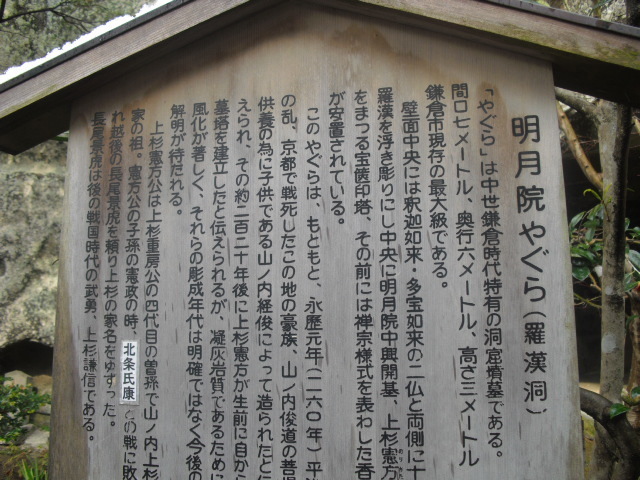 明月院やぐら(羅漢洞)
「やぐら」は中世鎌倉時代特有の洞窟墳墓である。
間口七メートル、奥行六メートル、高さ三メートル
鎌倉市現存の最大級である。
壁面中央には釈迦如来・多宝如来の二仏と両側に十
羅漢を浮き彫りにし中央に明月院中興開基、上杉憲方
のりかた
をまつる宝篋印塔、その前には禅宗様式を表わした香
が安置されている。
このやぐらは、もともと、永暦元年(一一六〇年)平治
の乱、京都で戦死したこの地の豪族、山ノ内俊道の菩提
供養の為に子供である山ノ内経俊によって造られたと伝
えられ、その約二百二十年後に上杉憲方が生前に自から
墓塔を建立したと伝えられるが、凝灰岩質であるために
風化が著しく、それらの彫成年代は明確ではなく今後の
解明が待たれる。
上杉憲方公は上杉重房公の四代目の曽孫で山ノ内上杉
家の祖。憲方公の子孫の憲政の時、北条氏康との戦に敗
れ越後の長尾景虎を頼り上杉の家名をゆずった。
長尾景虎は後の戦国時代の武勇、上杉謙信である。